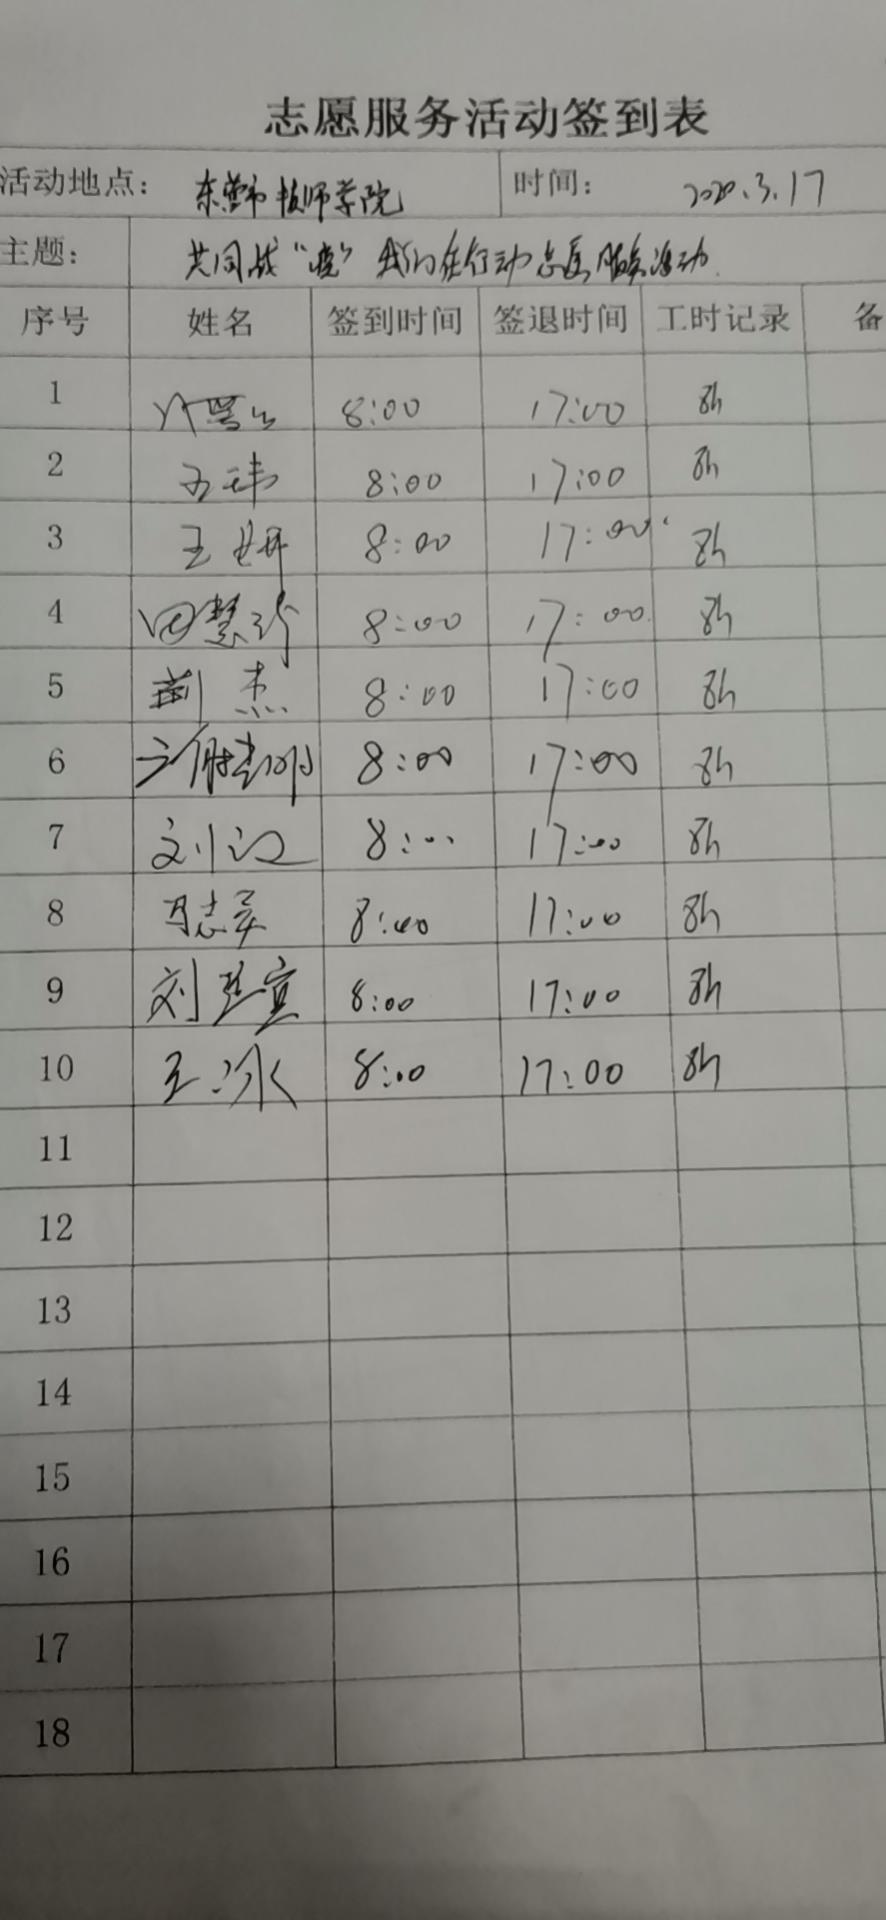 志愿服务活动签到表
活动地点： 东营市技师学院 时间： 2020.3.17
主题： 共同战“疫”我们在行动志愿服务活动
序号 姓名 签到时间 签退时间 工时记录 备
1 8:00 17:00 8h
2 王玮 8:00 17:00 8h
3 王妍 8:00 17:00 8h
4 田慧 8:00 17:00 8h
5 荆杰 8:00 17:00 8h
6 8:00 17:00 8h
7 刘江 8:00 17:00 8h
8 志 8:00 17:00 8h
9 刘宣 8:00 17:00 8h
10 王冰 8:00 17:00 8h
11
12
13
14
15
16
17
18